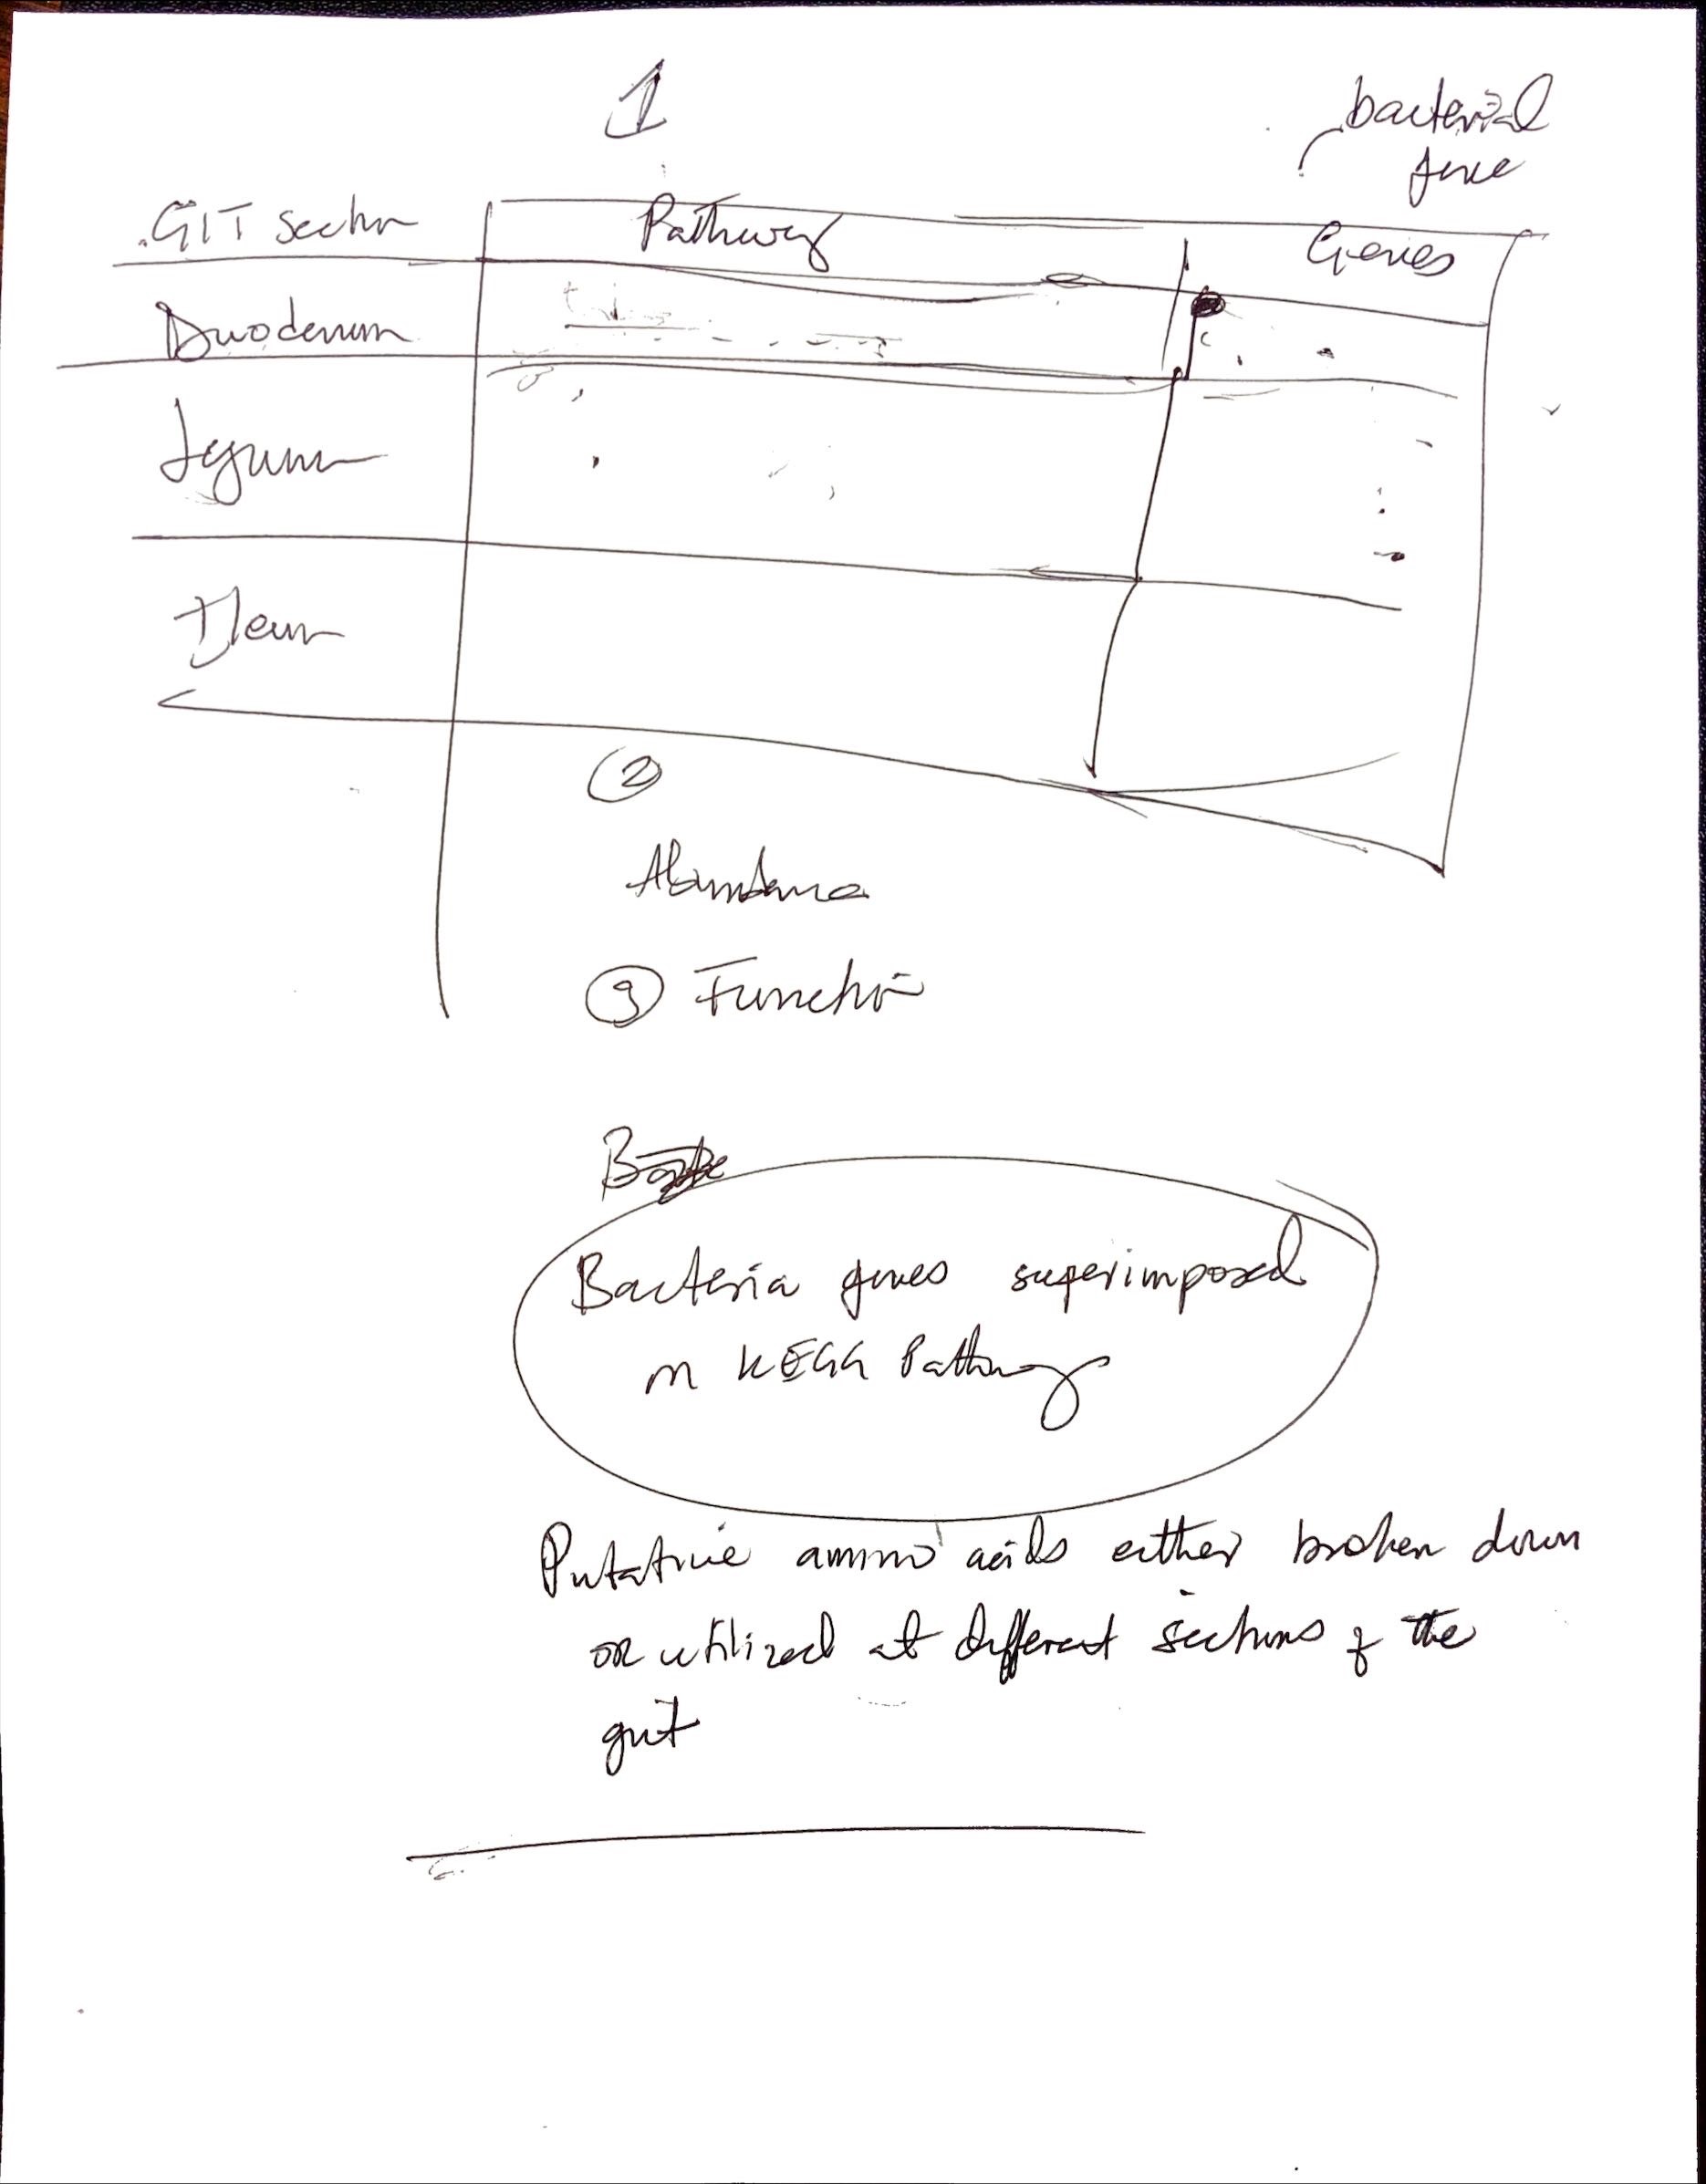 1
bacterial
gene
GIT section Pathway Genes
Duodenum
Jejunum
Ileum
②
Abundance
③ Function
Bacteria genes superimposed
on KEGG Pathway
Putative amino acids either broken down
or utilized at different sections of the
gut